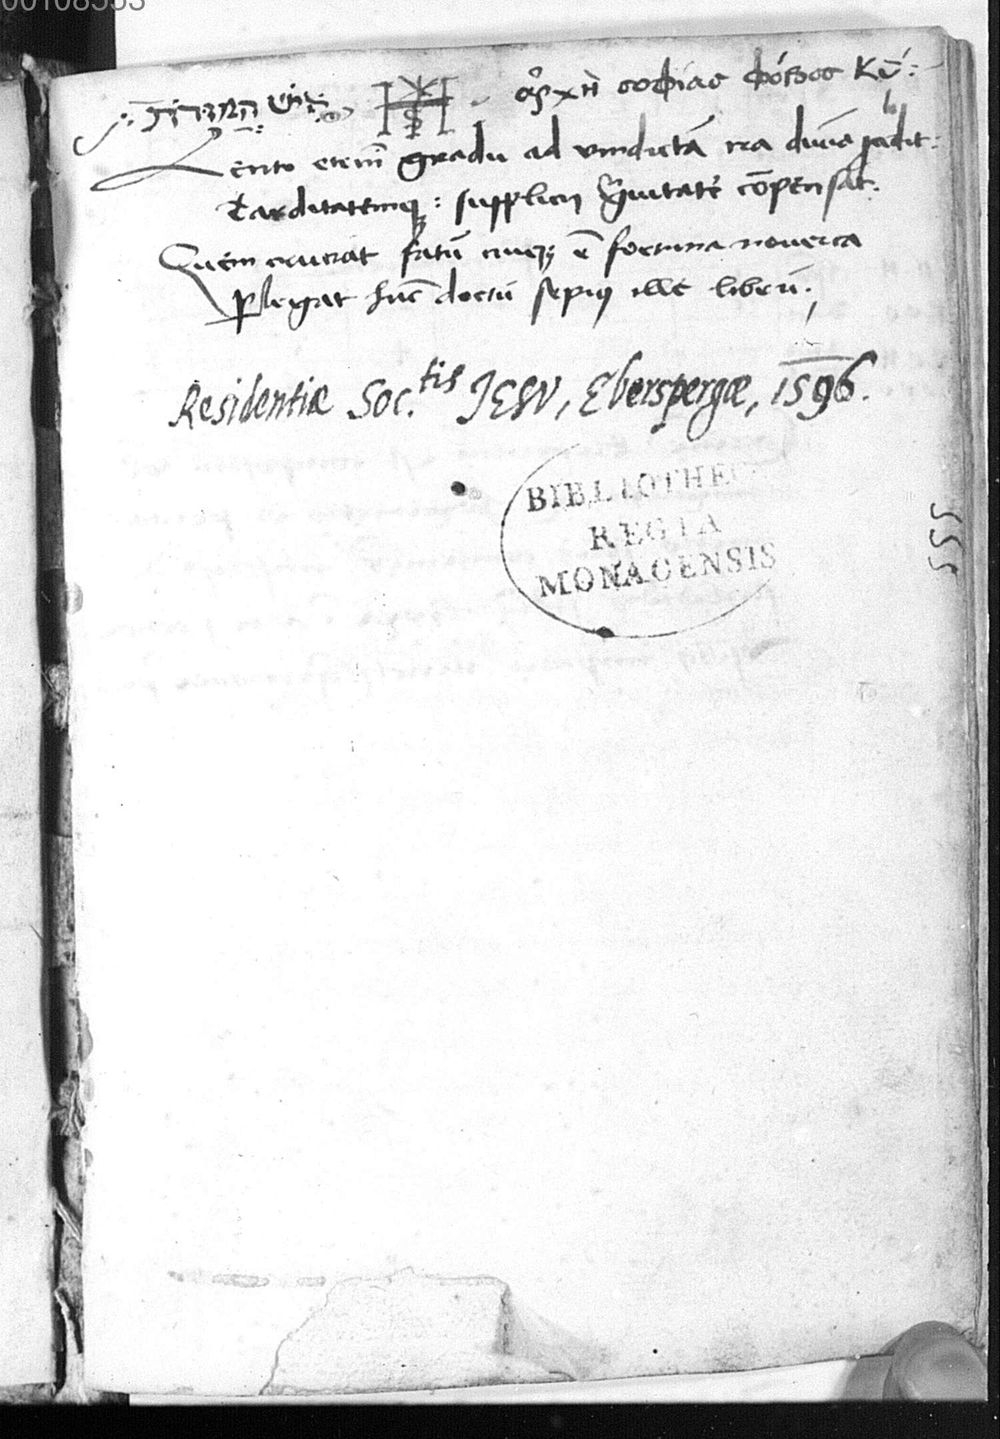 00108553
ἀρχὴ σοφίας φόβος κύ:
Lento etenī gradu ad vindictā ira diuīa ꝓcedit:
Tarditatemqꝫ: supplicii g̃uitatē cōpensat.
Quem cruciat fatū cuiqꝫ ē fortuna nouerca
Perlegat hūc doctū sepiꝰ ille librū.
Residentiæ Soc.tis JESV, Eberspergæ, 1596.
BIBLIOTHECA
REGIA
MONACENSIS
555